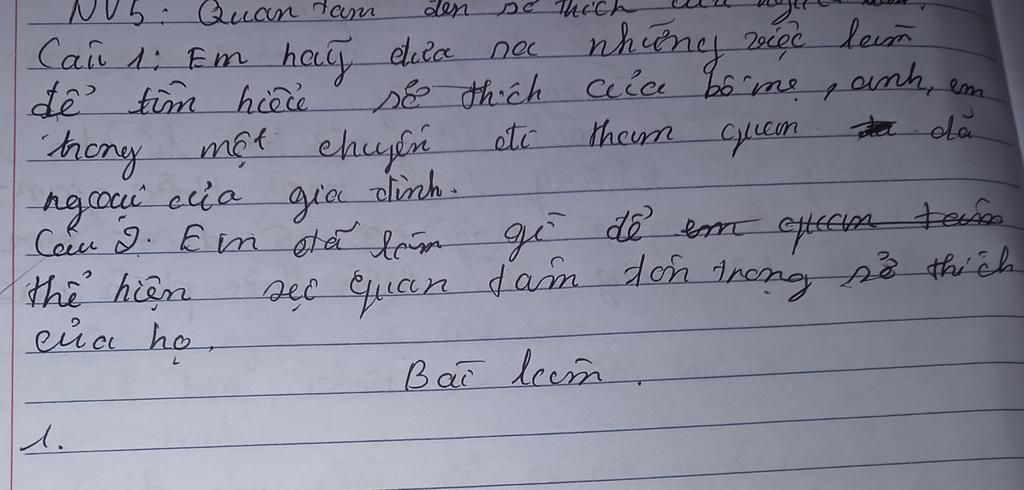 NV5: Quan tâm đến sở thích của người
Câu 1: Em hãy đưa ra những việc làm
để tìm hiểu sở thích của bố mẹ, anh, em
trong một chuyến đi tham quan dã
ngoại của gia đình.
Câu 2. Em đã làm gì để em quan tâm
thể hiện sự quan tâm tôn trọng sở thích
của họ.
Bài làm.
1.